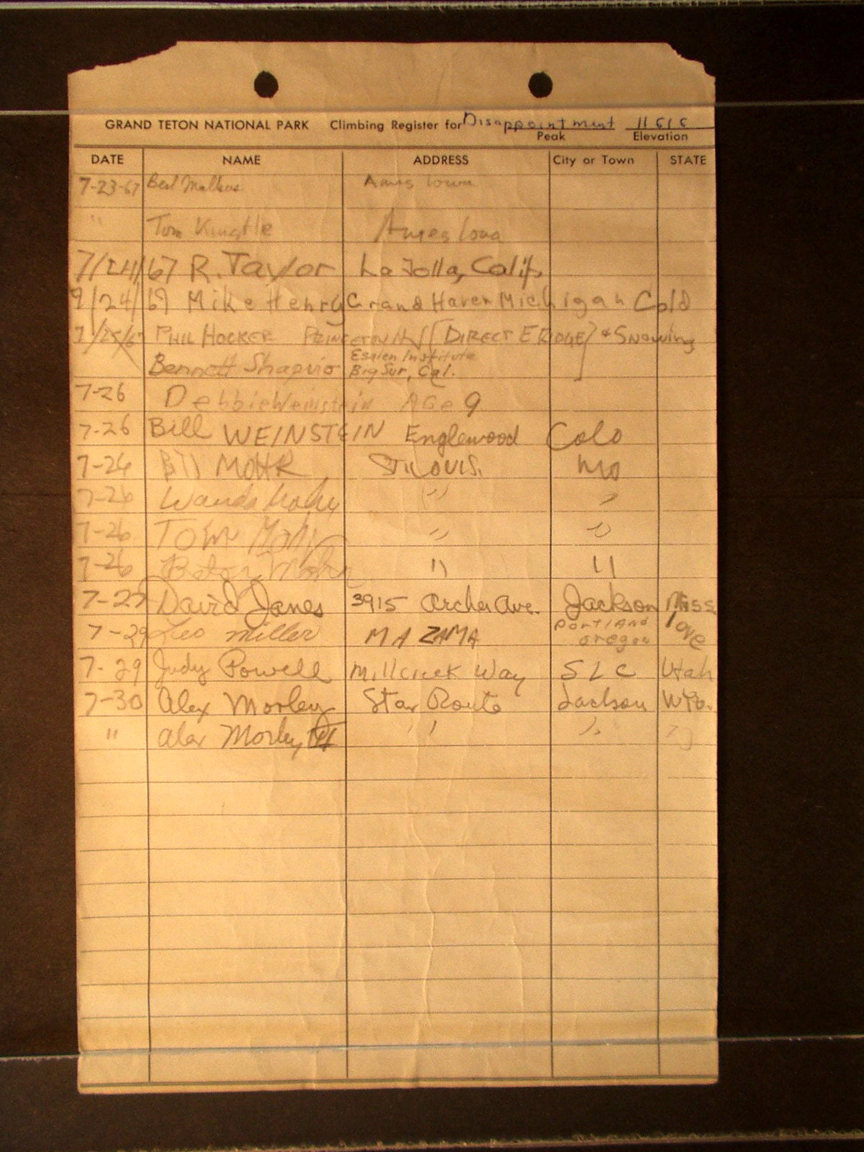 GRAND TETON NATIONAL PARK Climbing Register for Disappointment
Peak Elevation
DATE NAME ADDRESS City or Town STATE
7-23-67 Ames Iowa
" Tom Ames Iowa
7/24/67 R. Taylor La Jolla, Calif.
Mike Henry Grand Haven Michigan Cold
PHIL HOCKER PRINCETON NJ [DIRECT E RIDGE] & Snowing
Bennett Shapiro Esalen Institute
Big Sur, Cal.
7-26 Debbie Weinstein AGE 9
7-26 Bill WEINSTEIN Englewood Colo
7-26 Bill MOHR ST. LOUIS. Mo
7-26 Wanda Mohr " "
7-26 Tom Mohr " "
7-26 Mohr " "
7-27 David Janes 3915 Archer Ave. Jackson Miss
7-29 Leo Miller MAZAMA Portland
oregon
7-29 Judy Powell Millcreek Way SLC Utah
7-30 Alex Morley Star Route Jackson Wyo.
" Alex Morley III " " "